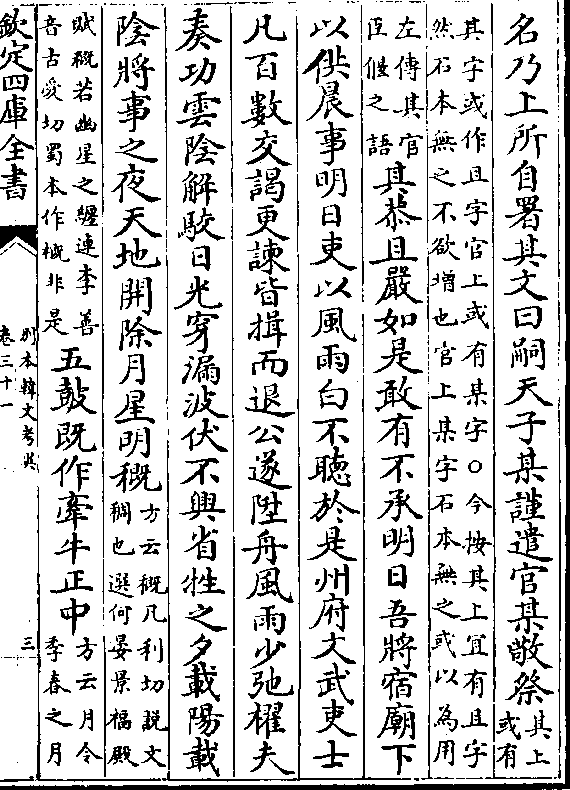 名乃上所自署其文曰嗣天子某謹遣官某敬祭其上
或有
其字或作且字官上或有某字○今按其上冝有且字
然石本無之不欲增也官上某字石本無之或以為用
左傳其官
臣偃之語
其恭且嚴如是敢有不承明日吾將宿廟下
以供晨事明日吏以風雨白不聽於是州府文武吏士
凡百數交謁更諫皆揖而退公遂陞舟風雨少弛櫂夫
奏功雲陰解駮日光穿漏波伏不興省牲之夕載陽載
陰將事之夜天地開除月星明穊
方云穊几利切說文
稠也選何晏景福殿
賦穊若幽星之纚連李善
音古愛切蜀本作概非是
五鼓既作牽牛正中
方云月令
季春之月
欽定四庫全書
別本韓文考異
卷三十一
三